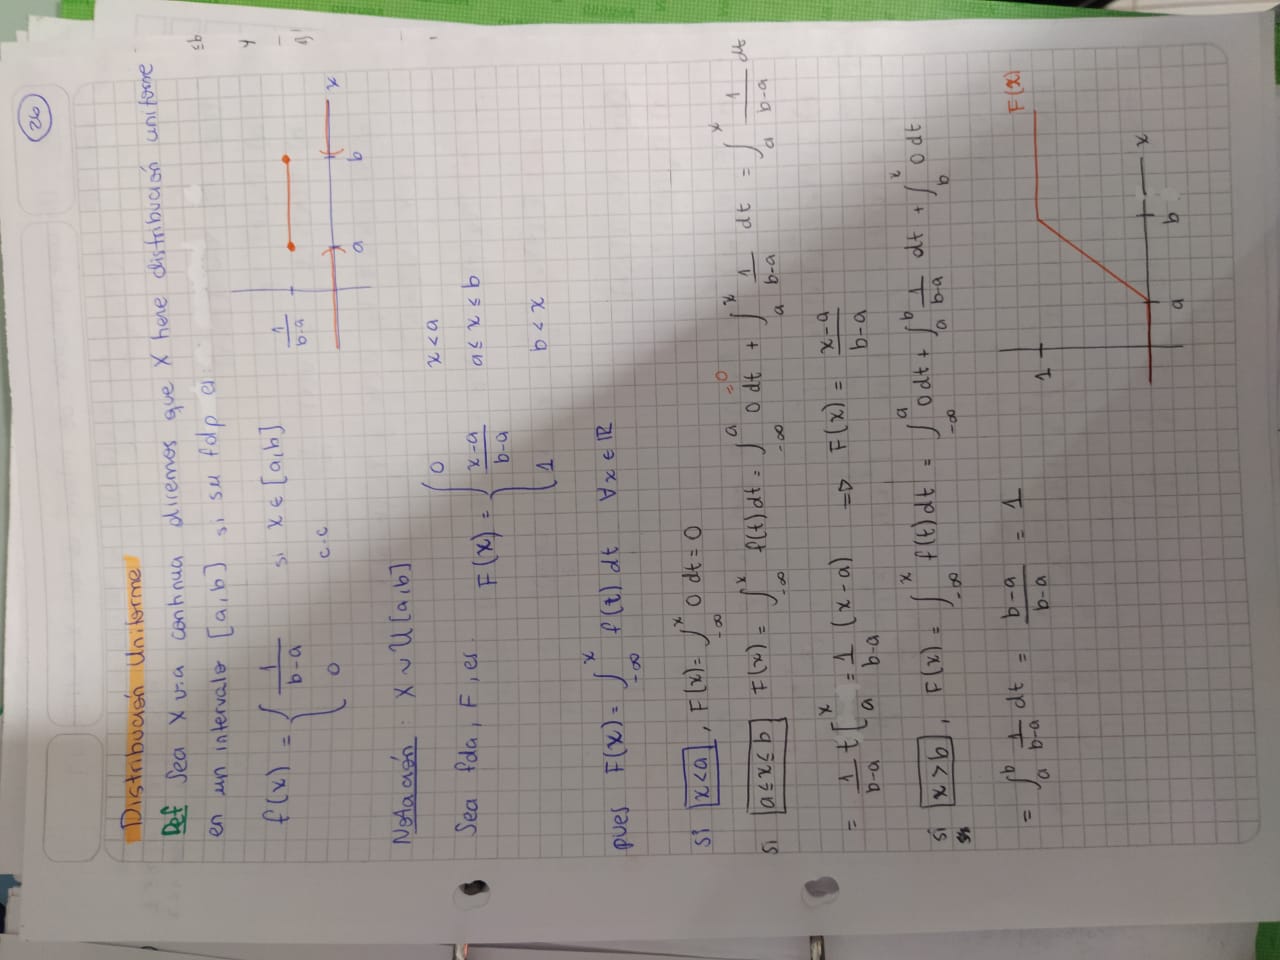 26
Distribución Uniforme
Def Sea X v.a continua diremos que X here distribución uniforme
en un intervalo [a,b] si su fdp es:
f(x) = { 1/(b-a) si x ∈ [a,b]
0 c.c
1/(b-a)
a b x
Notación: X ~ U[a,b]
Sea fda, F, es
F(x) = { 0 x < a
(x-a)/(b-a) a ≤ x ≤ b
1 b < x
pues F(x) = ∫_{-∞}^{x} f(t) dt ∀x ∈ ℝ
si x<a, F(x) = ∫_{-∞}^{x} 0 dt = 0
si a≤x≤b F(x) = ∫_{-∞}^{x} f(t)dt = ∫_{-∞}^{a} 0 dt + ∫_{a}^{x} 1/(b-a) dt = ∫_{a}^{x} 1/(b-a) dt
=0
= 1/(b-a) t [_{a}^{x} = 1/(b-a) (x-a) => F(x) = (x-a)/(b-a)
si x>b, F(x) = ∫_{-∞}^{x} f(t)dt = ∫_{-∞}^{a} 0 dt + ∫_{a}^{b} 1/(b-a) dt + ∫_{b}^{x} 0 dt
= ∫_{a}^{b} 1/(b-a) dt = (b-a)/(b-a) = 1
1
F(x)
a b x